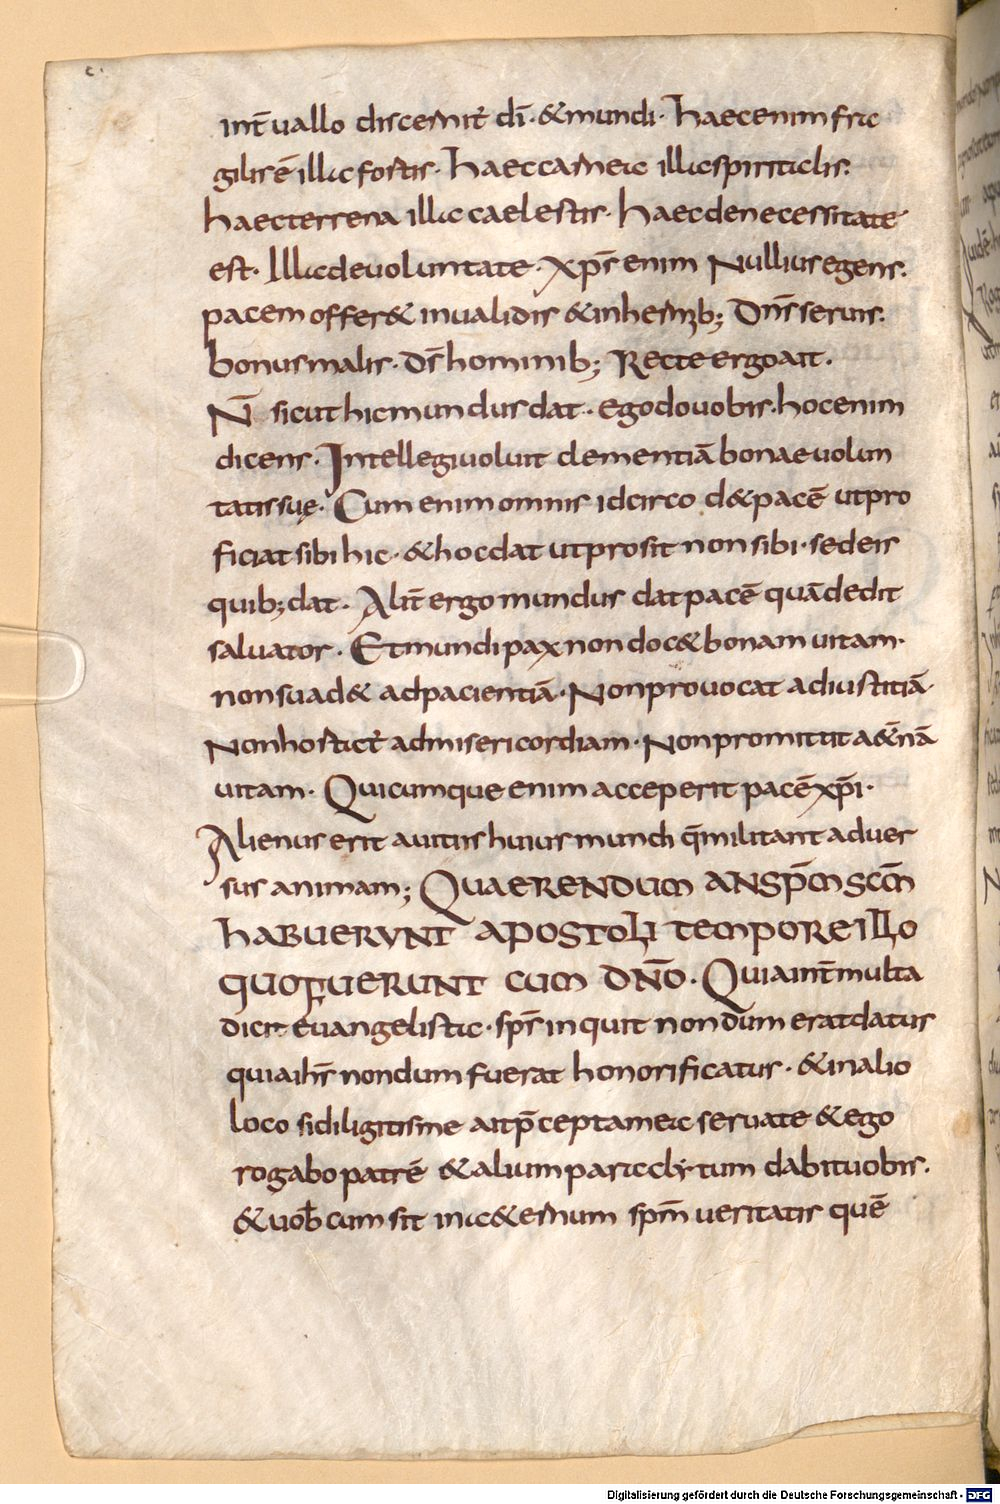 int̄uallo discernit̄ dī · &mundi · haecenimfra
gilisē illicfortis · haeccarnea illicspiritalis:
haecterrena illiccaelestis · haecdenecessitate
est · Illicdeuoluntate · xp̄s enim Nulliusegens.
pacemoffer& inualidis &inhermib; Dn̄sseruis.
bonusmalis · Ds̄hominib; Recteergoait .
N̄ sicuthicmundusdat · egodouobis · hocenim
dicens · Intellegiuoluit clementiā bonaeuolun
tatissuę · Cum enimomnis idcirco d&pacē utpro
ficiatsibihic · &hocdat utprosit nonsibi · sedeis
quib;dat . Alit̄ ergomundus datpacē quādedit
saluator . Etmundipaxnondoc&bonam uitam ·
nonsuad& adpacientiā · Nonprouocat adiustitiā ·
Nonhortat̄ admisericordiam · Nonpromittita&nā
uitam · Quicumqueenimacceperit pacēxp̄i ·
Alienuserit auitiishuiusmundi q̄militantaduer
sus animam; QUAERENDUM ANSP̄MSC̄M
HABUERUNT APOSTOLI TEMPOREILLO
QUOFUERUNT CUM DN̄O · Quiaint̄multa
dicit euangelista · sp̄sinquit nondūmeratdatus
quiaih̄snondumfuerat honorificatus · &inalio
loco sidiligitisme aitp̄ceptamea seruate &ego
rogabopatrē &aliumparaclytum dabituobis.
&uob̄cumsit ina&ernum sp̄m ueritatis quē
Digitalisierung gefördert durch die Deutsche Forschungsgemeinschaft - DFG